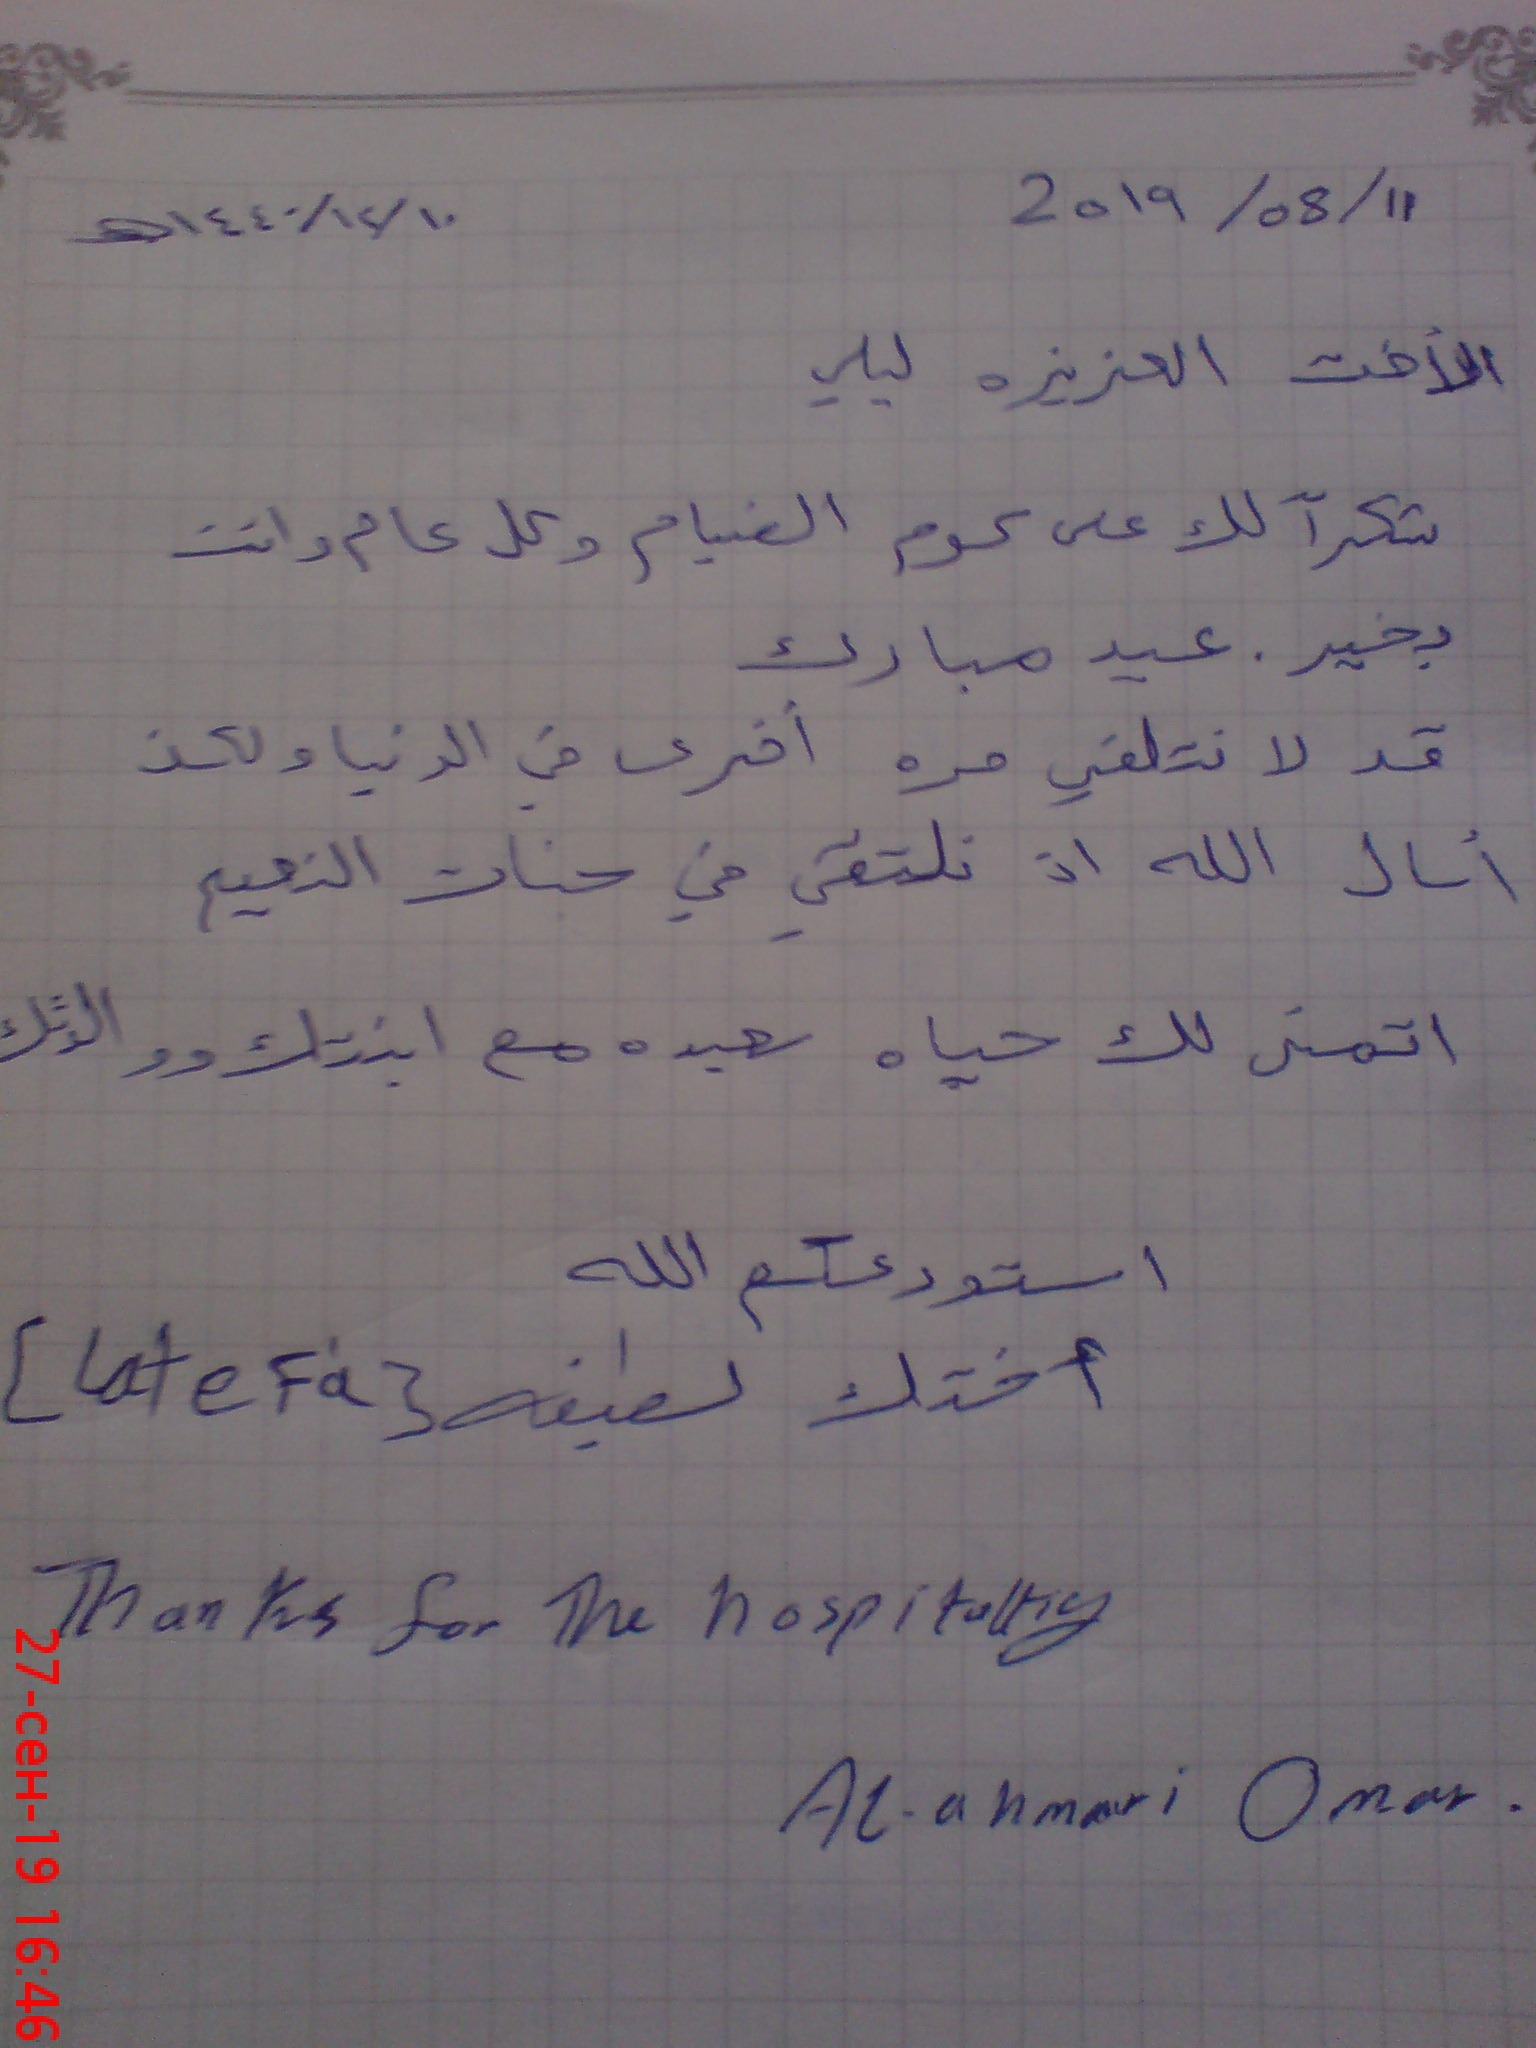 2019/08/11
١٤٤٠/١٢/١٠هـ
الأخت العزيزه ليلى
شكراً لك على كرم الضيام وكل عام وانت
بخير. عيد مبارك
قد لا نتلقي مره أخرى في الدنيا ولكن
أسال الله ان نلتقي في جنات النعيم
اتمنى لك حياه سعيده مع ابنتك ووالدتك
استودعكم الله
أختك لطيفه [LateFa]
Thanks for The hospitality
Al-ahmari Omar.
27-сен-19 16:46